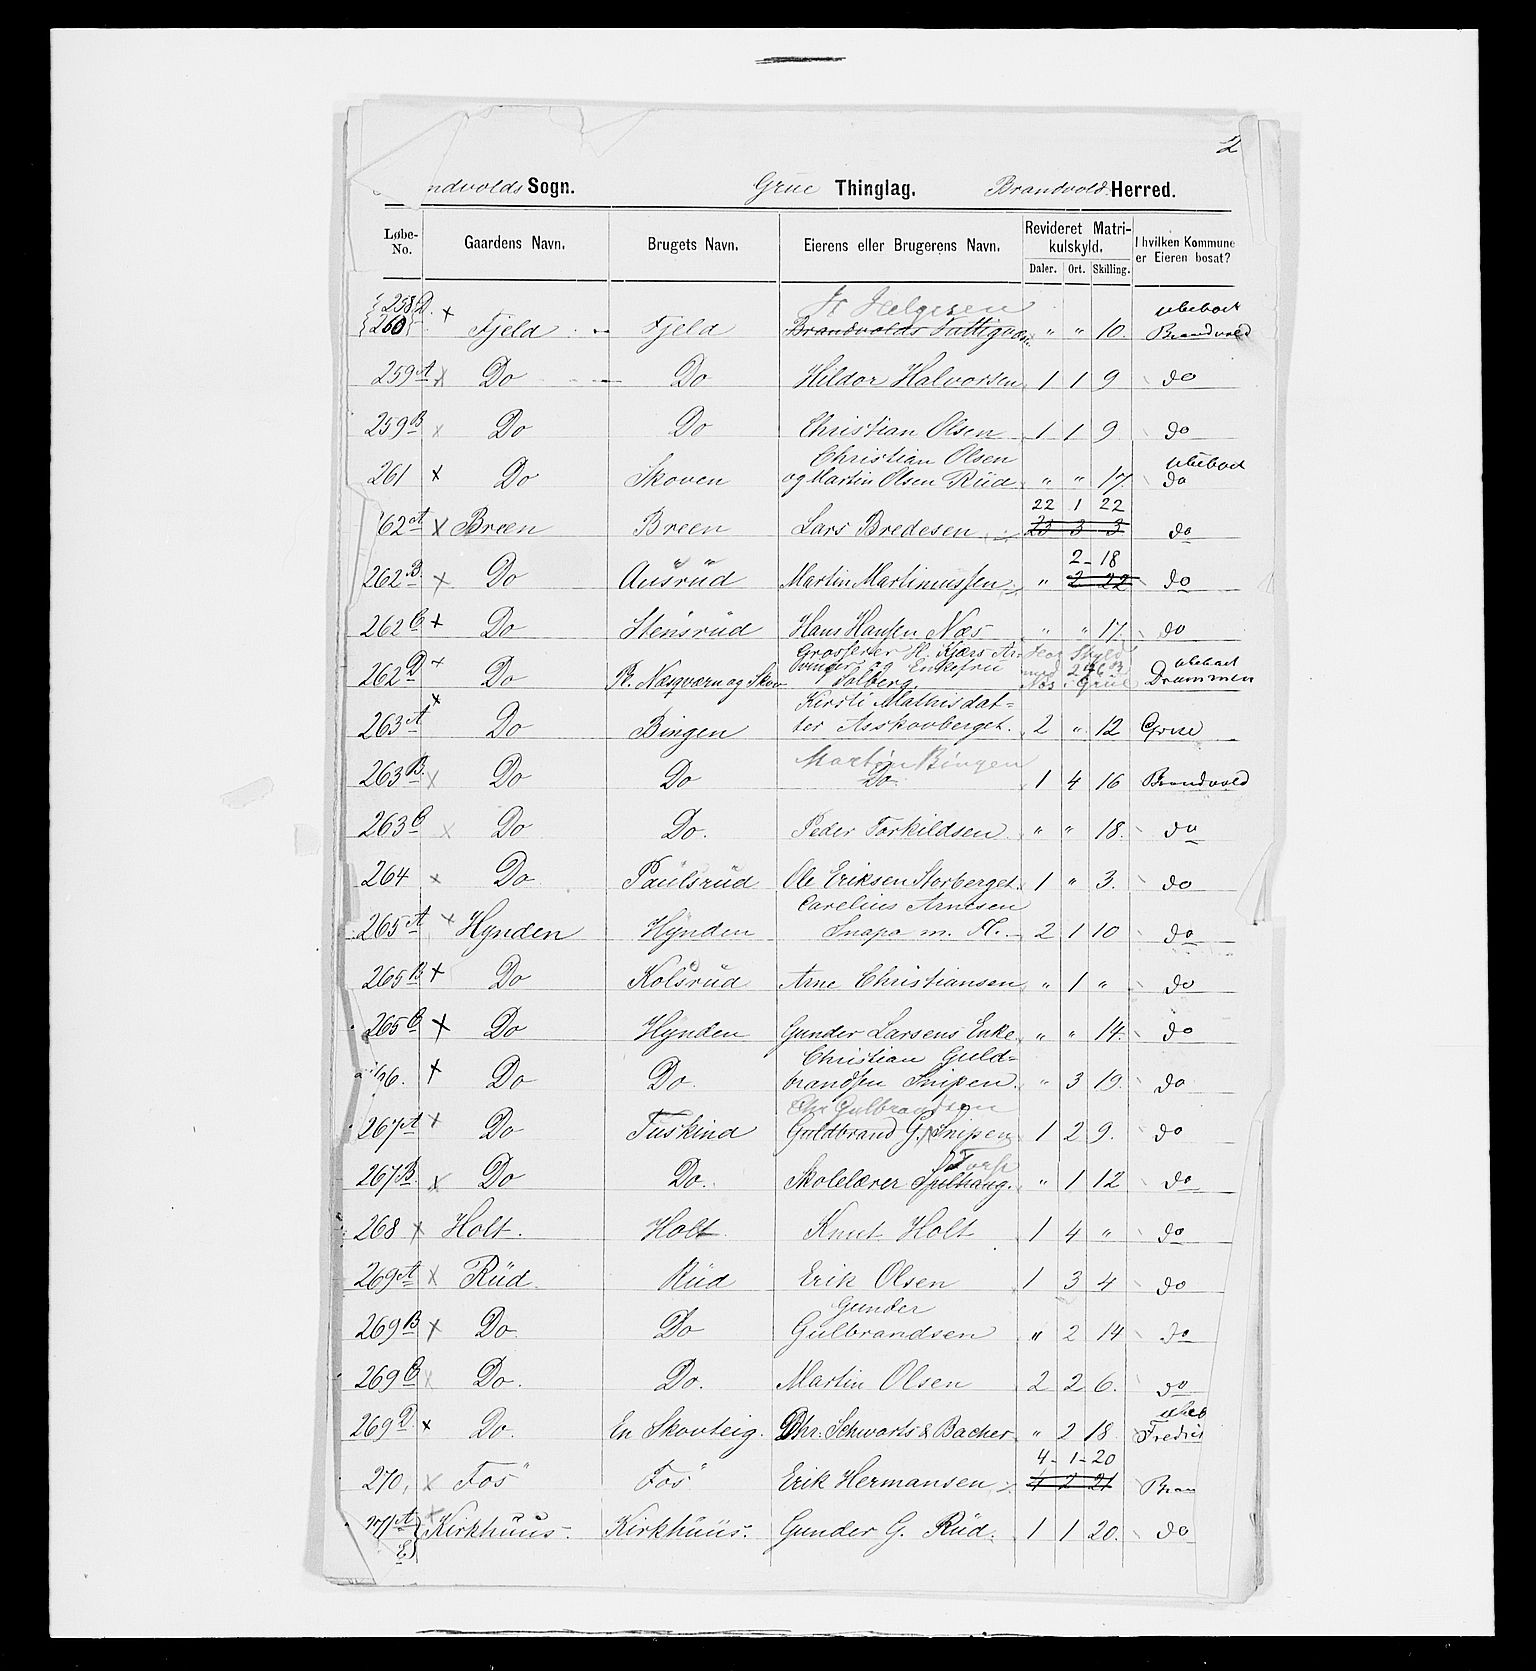 2
ndvolds Sogn. Grue Thinglag. Brandvold Herred.
Løbe-No. Gaardens Navn. Brugets Navn. Eierens eller Brugerens Navn. Revideret Matrikulskyld. Daler. Ort. Skilling. I hvilken Kommune er Eieren bosat?
Helgesen ubeboet
258 D. 260 × Fjeld Fjeld Brandvolds Fattigvæs. " " 10. Brandvold
259 A × Do Do Hildor Halvorsen 1 1 9 do
259 B × Do Do Christian Olsen 1 1 9 do
Christian Olsen ubeboet
261 × Do Skoven og Martin Olsen Rüd " " 17 do
22 1 22
62 A × Breen Breen Lars Bredesen 23 3 3 do
2 - 18
262 B. × Do Ausrüd Martin Martinussen " 2 22 do
262 C × Do Stensrüd Hans Hansen Næs " " 17. do
Grosserer H. Kjærs Ar- Har Skyld
262 D × Do Pl. Næsqværn og Skov vinger og Enkefru Solberg Næs i Grue ubeboet Drammen
Kirsti Mathisdat=
263 A × Do Bingen ter Asskovberget. 2 " 12 Grue
Martin Bingen
263 B. × Do Do Do. 1 4 16 Brandvold
263 C × Do Do. Peder Torkildsen " " 18. do
264 × Do Paulsrüd Ole Eriksen Storberget. 1 " 3. do
Carelius Arnesen
265 A × Hynden Hynden Snapa m. Fl. 2 1 10 do
265 B × Do Kolsrud Arne Christiansen " 1 " do
265 C × Do Hynden Gunder Larsens Enke " " 14. do
Christian Guld=
6. × Do Do. brandsen Snipen. " 3 19. do
Chr Gulbrandsen
267 A × Do Tuskind Guldbrand G. Snipen 1 2 9. do
Torp
267 B. × Do Do. Skolelærer Spelhaug. " 1 12 do
268 × Holt. Holt Knut Holt 1 4 " do
269 A × Rüd. Rüd Erik Olsen 1 3 4 do
Gunder
269 B × Do. Do Gulbrandsen " 2 14 do
269 C × Do. Do. Martin Olsen 2 2 6. do
ubeb
269 D. × Do. En Skovteig. Chr. Schwartz & Bacher " 2 18. Fredri
4 - 1 - 20
270, × Fos Fos Erik Hermansen 4 2 21 Bran
271 A E × Kirkhuus. Kirkhüüs. Gunder G. Rüd. 1 1 20. do